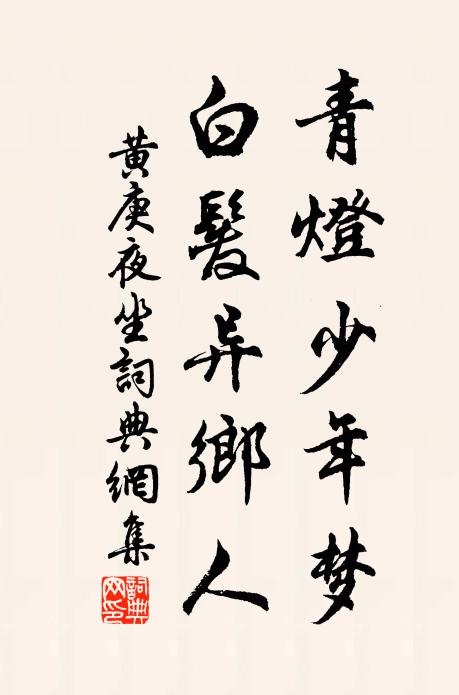 青燈少年梦
白髮异鄉人
黄庚夜坐詞典網集
詞典网印